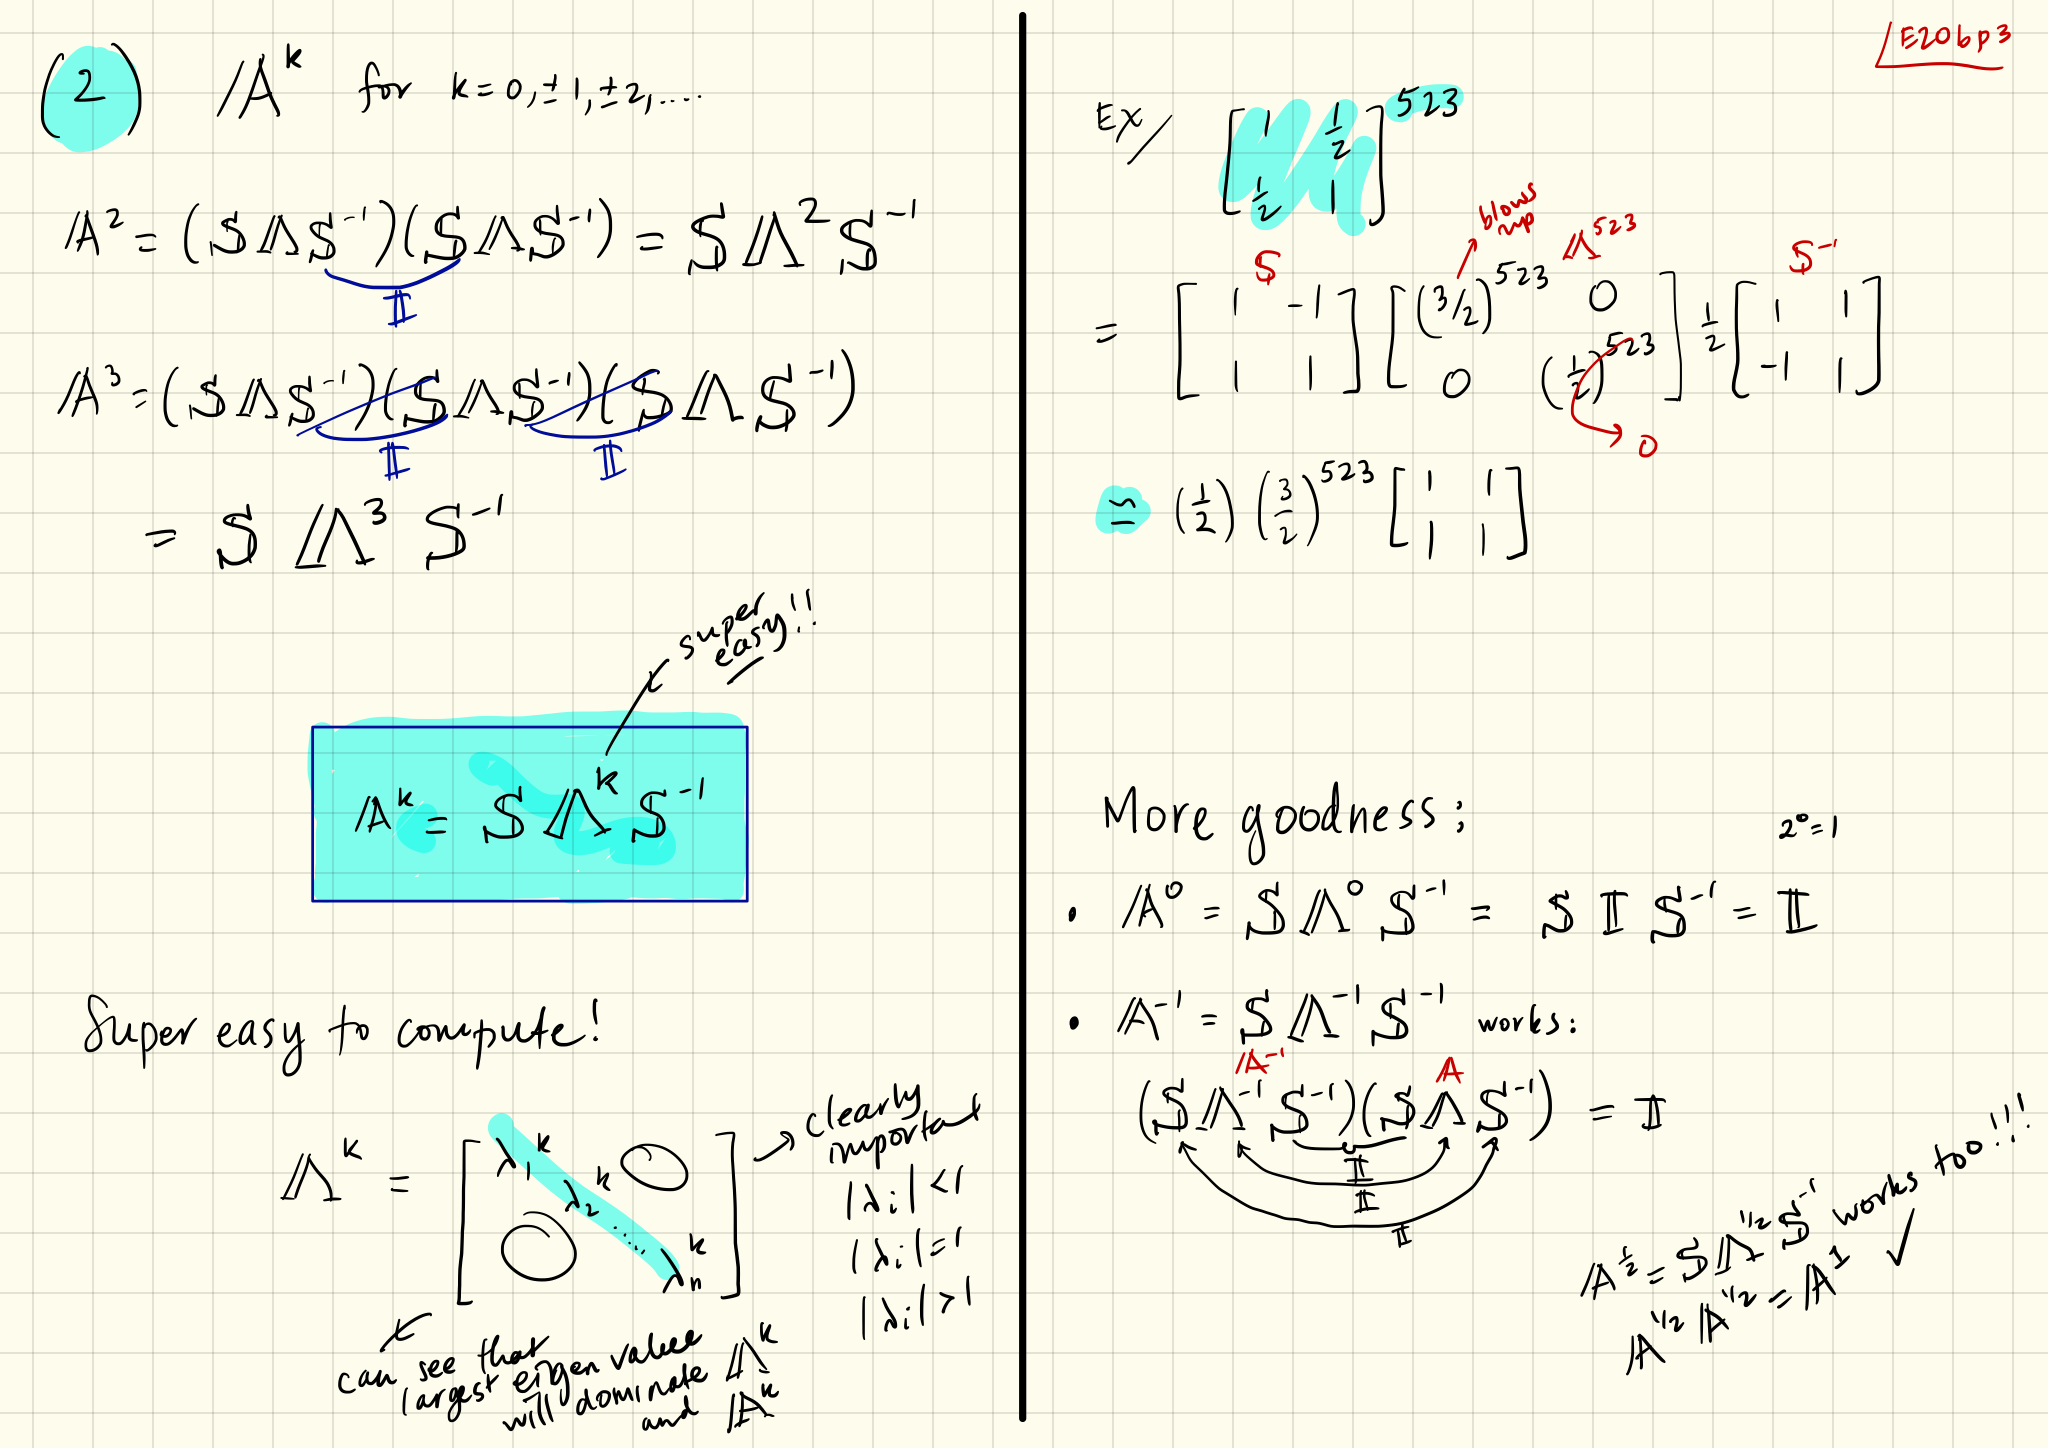 (2) 𝔸^k for k = 0, ±1, ±2, ....
𝔸² = (𝕊Λ𝕊⁻¹)(𝕊Λ𝕊⁻¹) = 𝕊Λ²𝕊⁻¹
𝕀
𝔸³ = (𝕊Λ𝕊⁻¹)(𝕊Λ𝕊⁻¹)(𝕊Λ𝕊⁻¹)
𝕀 𝕀
= 𝕊 Λ³ 𝕊⁻¹
super
easy!!
𝔸^k = 𝕊 Λ^k 𝕊⁻¹
Super easy to compute!
Λ^k = [ λ₁^k λ₂^k .... λₙ^k 0 0 ]
clearly
important
|λᵢ| < 1
|λᵢ| = 1
|λᵢ| > 1
can see that
largest eigenvalue
will dominate Λ^k
and 𝔸^k
E20bp3
EX/ [ 1 1/2
1/2 1 ]^523
blows
up
𝕊 Λ^523 𝕊⁻¹
= [ 1 -1 ] [ (3/2)^523 0 ] 1/2 [ 1 1 ]
[ 1 1 ] [ 0 (1/2)^523 ] [ -1 1 ]
0
≃ (1/2) (3/2)^523 [ 1 1
1 1 ]
More goodness:
2⁰ = 1
• 𝔸⁰ = 𝕊 Λ⁰ 𝕊⁻¹ = 𝕊 𝕀 𝕊⁻¹ = 𝕀
• 𝔸⁻¹ = 𝕊 Λ⁻¹ 𝕊⁻¹ works:
𝔸⁻¹ 𝔸
(𝕊 Λ⁻¹ 𝕊⁻¹)(𝕊 Λ 𝕊⁻¹) = 𝕀
𝕀
𝕀
𝕀
𝔸^½ = 𝕊 Λ^1/2 𝕊⁻¹ works too!!!
𝔸^1/2 𝔸^1/2 = 𝔸¹ ✓